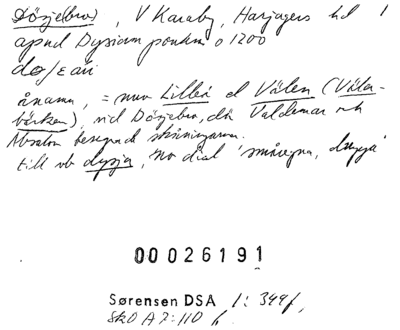 Dösjebro, V Karaby, Harjagers hd 1
apud Dysiam pontem o 1200
døs/e aii
ånamn, = nuv Lilleå el Välen (Väla-
bäcken), vid Dösjebro, där Valdemar och
Absalon besegrade skåningarna.
till vb dysja, no dial 'småregna, duggа'
00026191
Sørensen DSA 1: 344f,
SkO A 7:110 f,